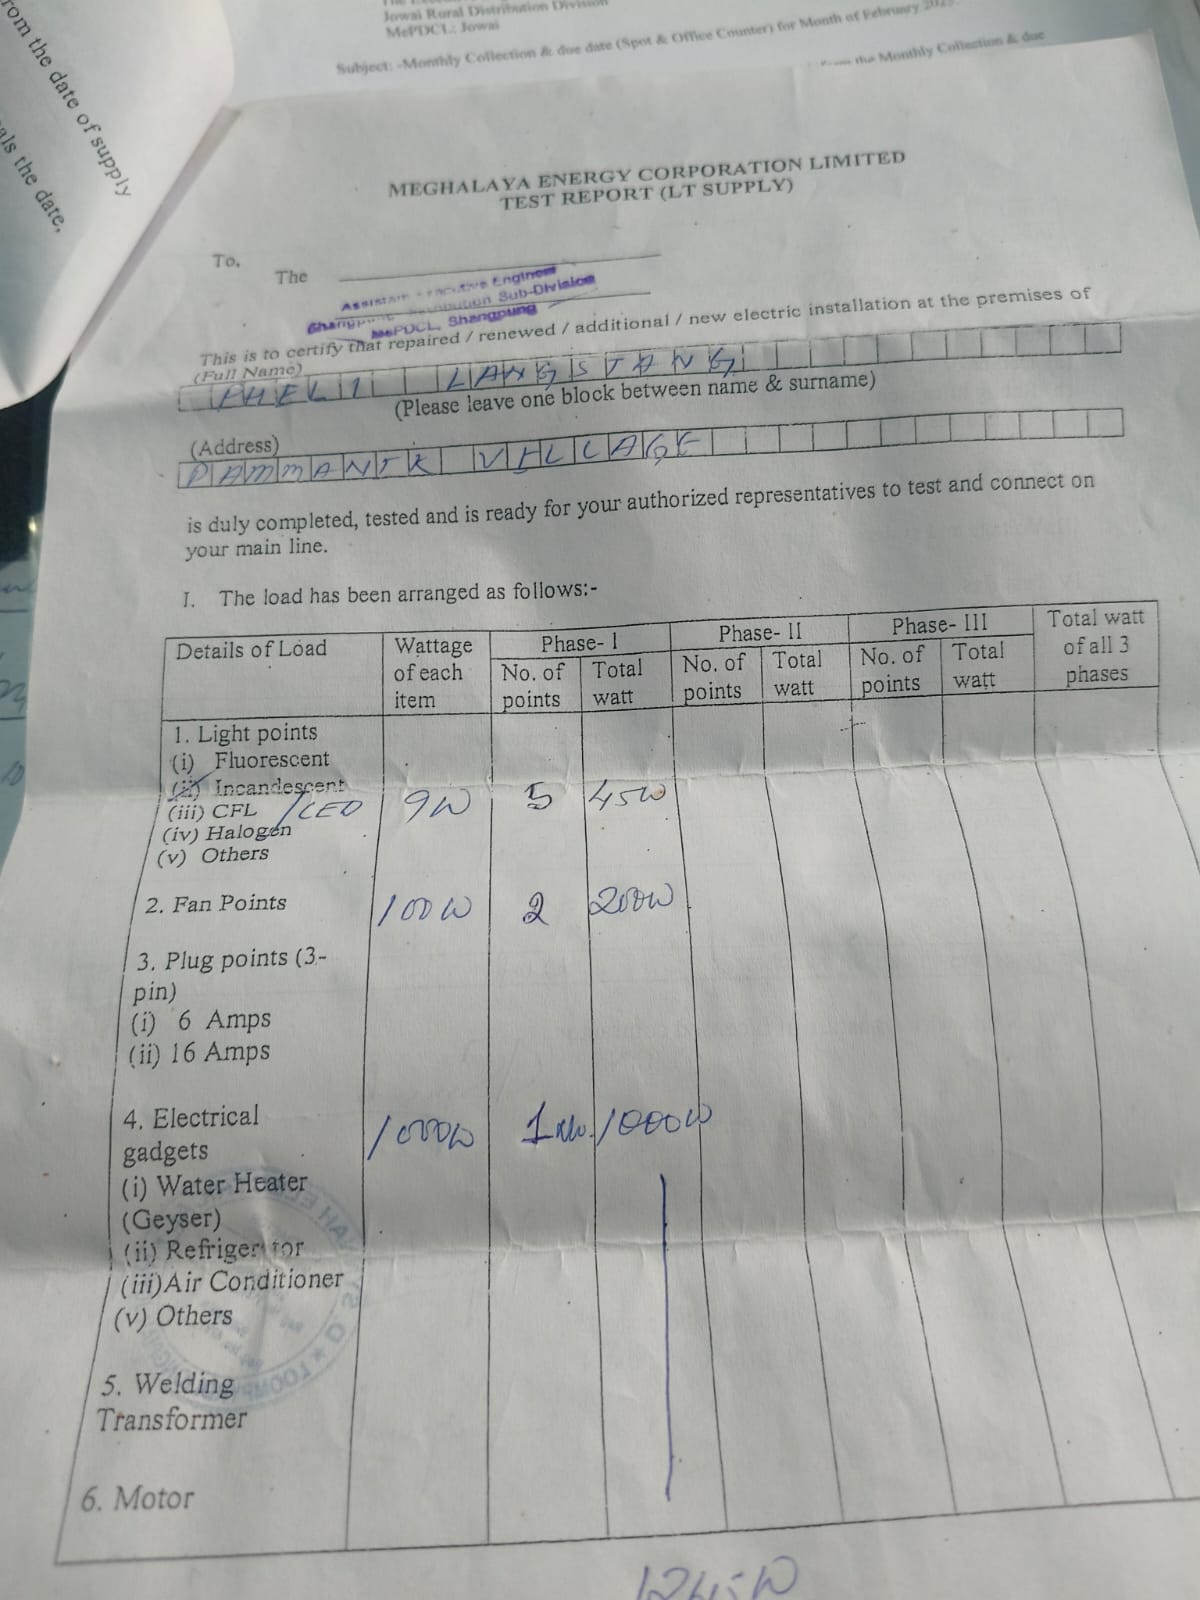 rom the date of supply
als the date,
Jowai Rural Distribution Division
MePDCL: Jowai
Subject: -Monthly Collection & due date (Spot & Office Counter) for Month of February
the Monthly Collection & due
MEGHALAYA ENERGY CORPORATION LIMITED
TEST REPORT (LT SUPPLY)
To,
The
Assistant Executive Engineer
Distribution Sub-Division
MePDCL, Shangpung
This is to certify that repaired / renewed / additional / new electric installation at the premises of
(Full Name)
PHELI LANGSTANG
(Please leave one block between name & surname)
(Address)
PAMMANIK VILLAGE
is duly completed, tested and is ready for your authorized representatives to test and connect on
your main line.
I. The load has been arranged as follows:-
Details of Load Wattage of each item Phase- I Phase- II Phase- III Total watt of all 3 phases
No. of points Total watt No. of points Total watt No. of points Total watt
1. Light points
(i) Fluorescent
(ii) Incandescent
(iii) CFL /LED 9W 5 45W
(iv) Halogen
(v) Others
2. Fan Points 100W 2 200W
3. Plug points (3-
pin)
(i) 6 Amps
(ii) 16 Amps
4. Electrical
gadgets 1000W 1 1000W
(i) Water Heater
(Geyser)
(ii) Refriger tor
(iii)Air Conditioner
(v) Others
5. Welding
Transformer
6. Motor
1245W